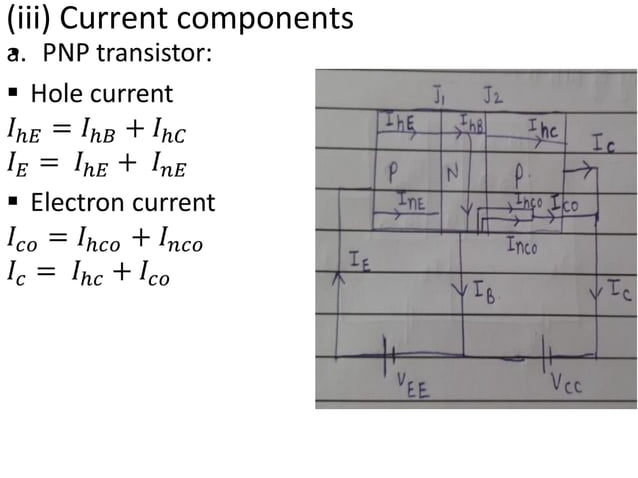 (iii) Current components
a. PNP transistor:
▪ Hole current
I_hE = I_hB + I_hC
I_E = I_hE + I_nE
▪ Electron current
I_co = I_hco + I_nco
I_c = I_hc + I_co
J1 J2
IhE IhB Ihc
Ic
P N P.
InE Ihco Ico
Inco
IE
IB Ic
VEE Vcc